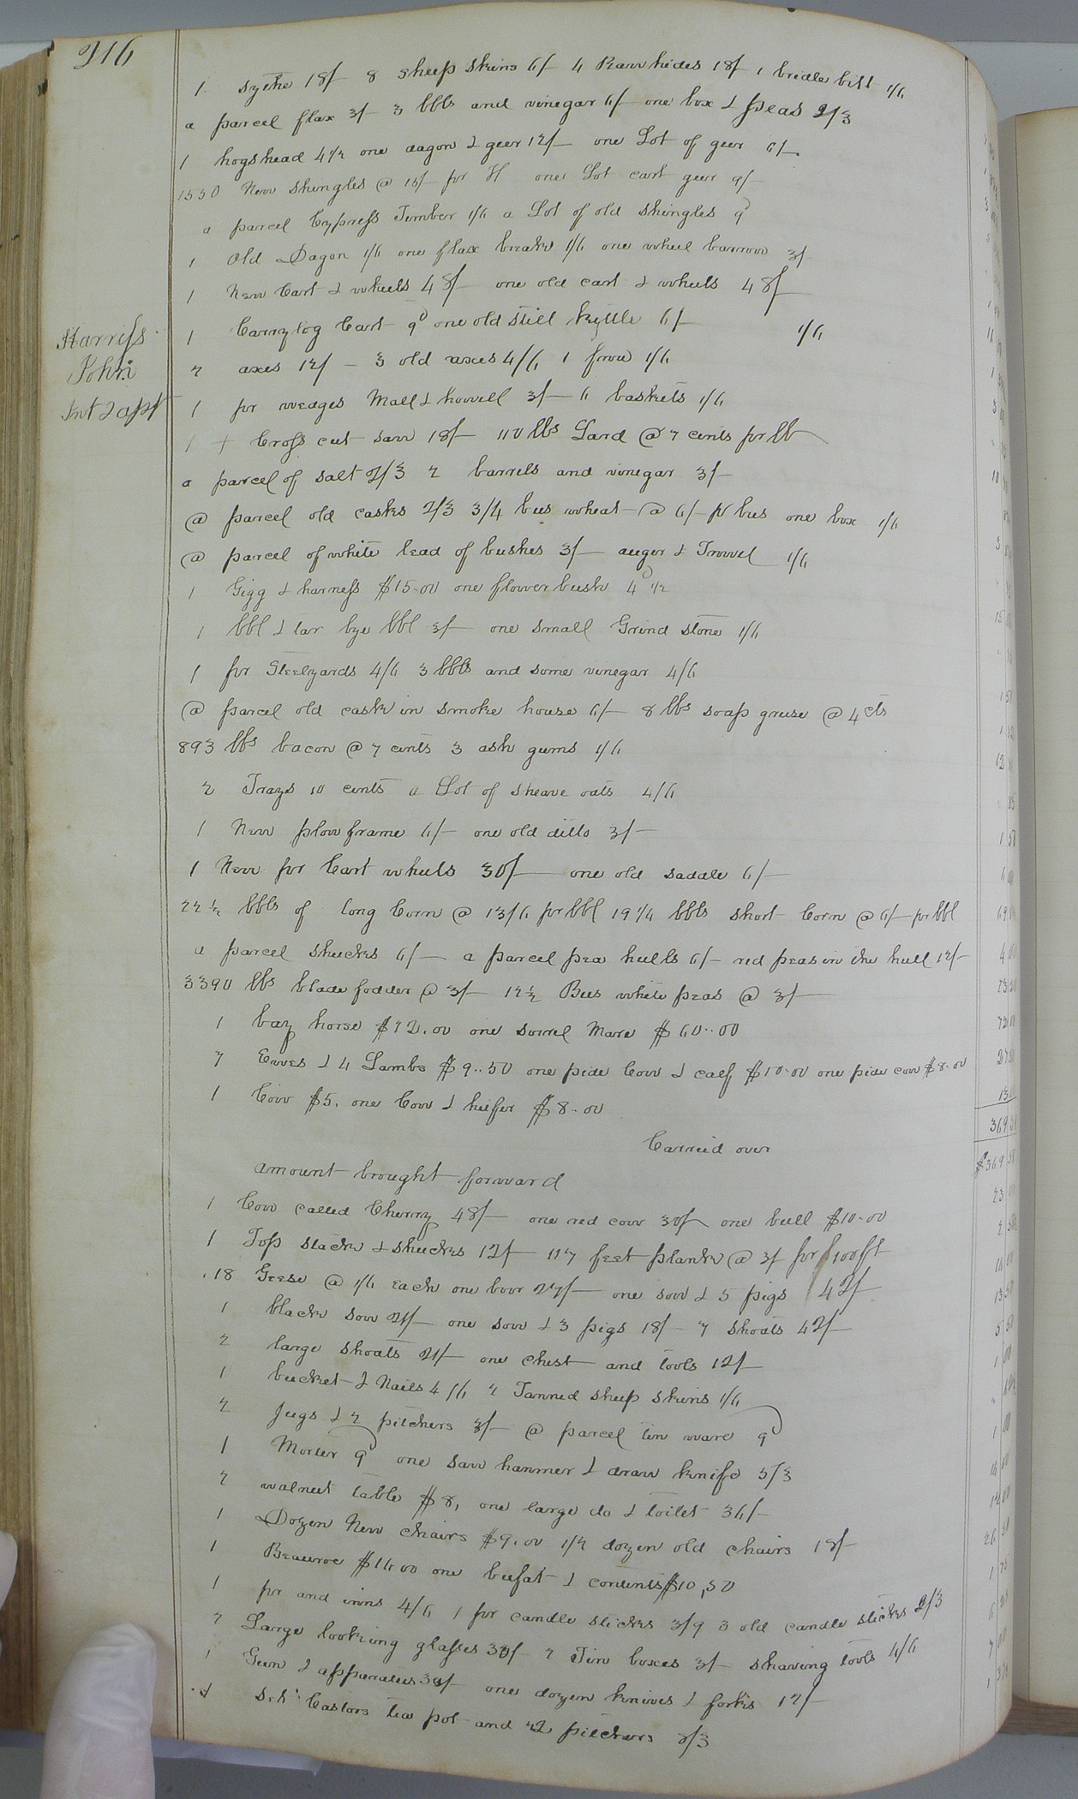 216
1 sythe 18/- 8 sheep skins 6/- 4 Raw hides 18/- 1 bridle bitt 1/6
a parcel flax 3/- 3 bbls and vinegar 6/- one box & peas 2/3
1 hogshead 4 1/2 one dagon & geer 12/- one Lot of geer 6/-
1550 New shingles @ 15/- pr M one Lot cart geer 9/-
a parcel Cypress Timber 1/6 a Lot of old shingles 9d
1 Old Dagon 1/6 one flax brake 1/6 one wheel barrow 3/-
1 New Cart & wheels 48/- one old cart & wheels 48/-
Harriss John Invt & apst
1 Carrylog Cart 9d one old still kettle 6/- 1/6
2 axes 12/- 3 old axes 4/6 1 frow 1/6
1 pr wedges Mall & howell 3/- 6 baskets 1/6
1 + Cross cut saw 18/- 110 lbs Lard @ 7 cents pr lb
a parcel of salt 2/3 2 barrels and vinegar 3/-
@ parcel old casks 2/3 3/4 bus wheat @ 6/- pr bus one box 1/6
@ parcel of white lead of bushes 3/- auger & Trowel 1/6
1 Gigg & harness $15.00 one flower bush 4d 1/2
1 bbl & tar bye bbl 3/- one small Grind stone 1/6
1 pr Steelyards 4/6 3 bbls and some vinegar 4/6
@ parcel old cask in smoke house 6/- 8 lbs soap grease @ 4 cts
893 lbs bacon @ 7 cents 3 ash gums 1/6
2 Trays 10 cents a Lot of sheave oats 4/6
1 New plow frame 6/- one old ditto 3/-
1 New pr Cart wheels 30/- one old saddle 6/-
22 1/2 bbls of long Corn @ 13/6 pr bbl 19 1/4 bbls short Corn @ 6/- pr bbl
a parcel shucks 6/- a parcel pea hulls 6/- red peas in the hull 12/-
3390 lbs blade fodder @ 3/- 12 1/2 Bus white peas @ 3/-
1 bay horse $72.00 one sorrel Mare $60..00
7 Ewes & 4 Lambs $9..50 one pide Cow & calf $10.00 one pide cow $8.00
1 Cow $5. one Cow & heifer $8.00
Carried over
amount brought forward
1 Cow called Cherry 48/- one red cow 30/- one bull $10.00
1 Top stack & shucks 12/- 117 feet plank @ 3/ pr 100 ft
18 Geese @ 1/6 Each one boor 27/- one sow & 5 pigs 42/-
1 black sow 21/- one sow & 3 pigs 18/- 7 shoats 42/-
2 large shoats 21/- one chest and tools 12/-
1 bucket & Nails 4/6 2 Tanned sheep skins 1/6
2 Jugs & 2 pitchers 3/- @ parcel tin ware 9d
1 Morter 9d one saw hanmer & draw knife 5/3
2 walnut table $8, one large do & toilet 36/-
1 Dozen New chairs $9.00 1/2 dozen old chairs 18/-
1 Beauroe $16.00 one bufat & contents $10,50
1 pr and irons 4/6 1 pr candle sticks 3/9 3 old candle sticks 2/3
2 Large looking glasses 30/- 2 Tin boxes 3/- shaving tools 4/6
1 Gun & apparatus 30/- one dozen knives & forks 12/-
Castors tea pot and 2 pitchers 8/3